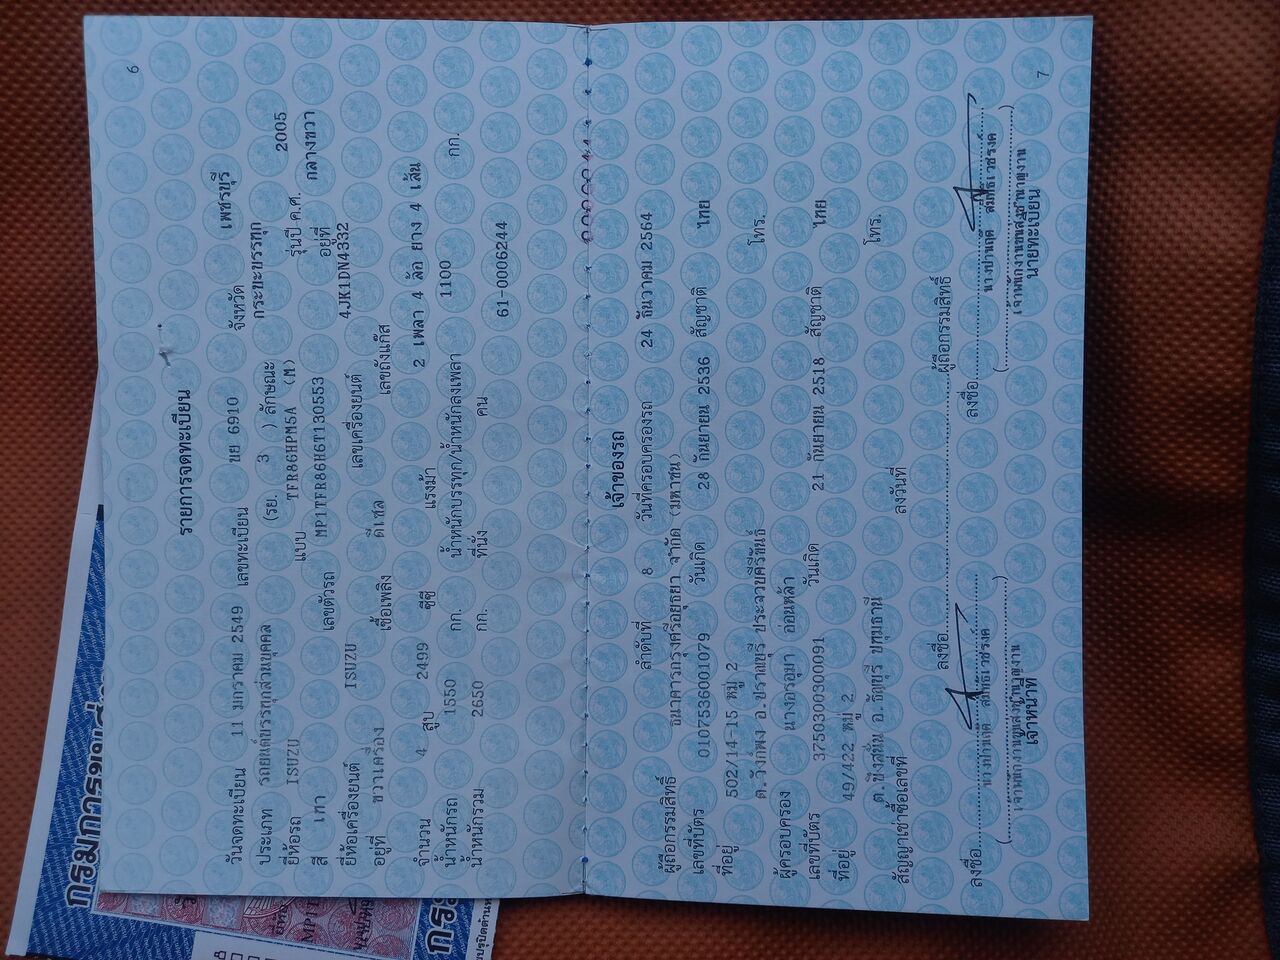 6
รายการจดทะเบียน
วันจดทะเบียน 11 มกราคม 2549 เลขทะเบียน พย 6910 จังหวัด เพชรบุรี
ประเภท รถยนต์บรรทุกส่วนบุคคล (รย. 3 ) ลักษณะ กระบะบรรทุก
ยี่ห้อรถ ISUZU แบบ TFR86HPM5A (M) รุ่นปี ค.ศ. 2005
สี เทา เลขตัวรถ MP1TFR86H6T130553 อยู่ที่ กลางขวา
ยี่ห้อเครื่องยนต์ ISUZU เลขเครื่องยนต์ 4JK1DN4332
อยู่ที่ ขวาเครื่อง เชื้อเพลิง ดีเซล เลขถังแก๊ส
จำนวน 4 สูบ 2499 ซีซี แรงม้า 2 เพลา 4 ล้อ ยาง 4 เส้น
น้ำหนักรถ 1550 กก. น้ำหนักบรรทุก/น้ำหนักลงเพลา 1100 กก.
น้ำหนักรวม 2650 กก. ที่นั่ง คน
61-0006244
เจ้าของรถ
ลำดับที่ 8 วันที่ครอบครองรถ 24 ธันวาคม 2564
ผู้ถือกรรมสิทธิ์ ธนาคารกรุงศรีอยุธยา จำกัด (มหาชน)
เลขที่บัตร 0107536001079 วันเกิด 28 กันยายน 2536 สัญชาติ ไทย
ที่อยู่ 502/14-15 หมู่ 2 โทร.
ต.วังก์พง อ.ปราณบุรี ประจวบคีรีขันธ์
ผู้ครอบครอง นางอรอุมา อ่อนหล้า
เลขที่บัตร 3750300300091 วันเกิด 21 กันยายน 2518 สัญชาติ ไทย
ที่อยู่ 49/422 หมู่ 2 โทร.
ต.บึงสนั่น อ.ธัญบุรี ปทุมธานี
สัญญาเช่าซื้อเลขที่ ลงวันที่
ลงชื่อ ผู้ถือกรรมสิทธิ์
ลงชื่อ ลงชื่อ
เจ้าหน้าที่ นายทะเบียน
7
กรมการขนส่ง